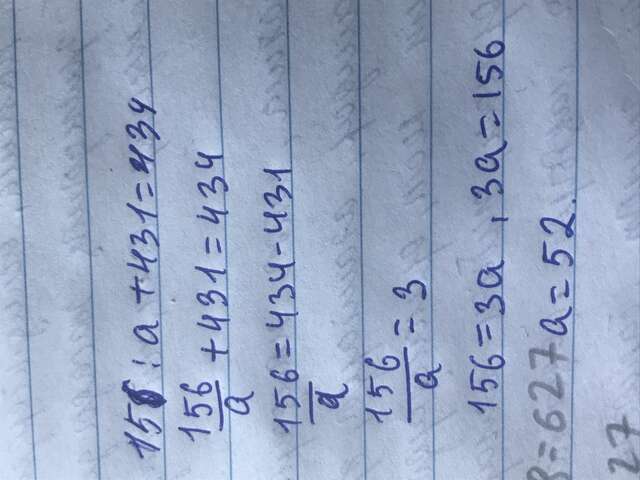 156 : a + 431 = 434
156/a + 431 = 434
156/a = 434 - 431
156/a = 3
156 = 3a , 3a = 156
a = 52.
8 = 627
27